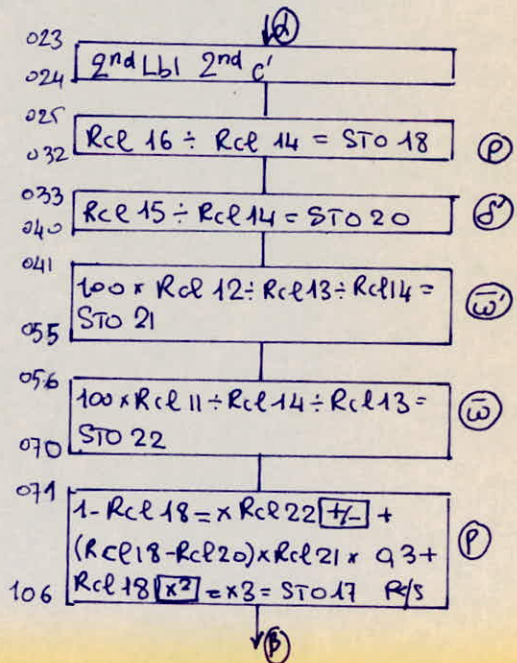 α
023
024
2nd Lbl 2nd c'
025
032
Rcl 16 ÷ Rcl 14 = STO 18
ρ
033
040
Rcl 15 ÷ Rcl 14 = STO 20
δ'
041
055
100 × Rcl 12 ÷ Rcl 13 ÷ Rcl 14 =
STO 21
ω̄'
056
070
100 × Rcl 11 ÷ Rcl 14 ÷ Rcl 13 =
STO 22
ω̄
071
106
1 - Rcl 18 = × Rcl 22 +/- +
(Rcl 18 - Rcl 20) × Rcl 21 × 0,3 +
Rcl 18 x² = × 3 = STO 17 R/S
μ
β